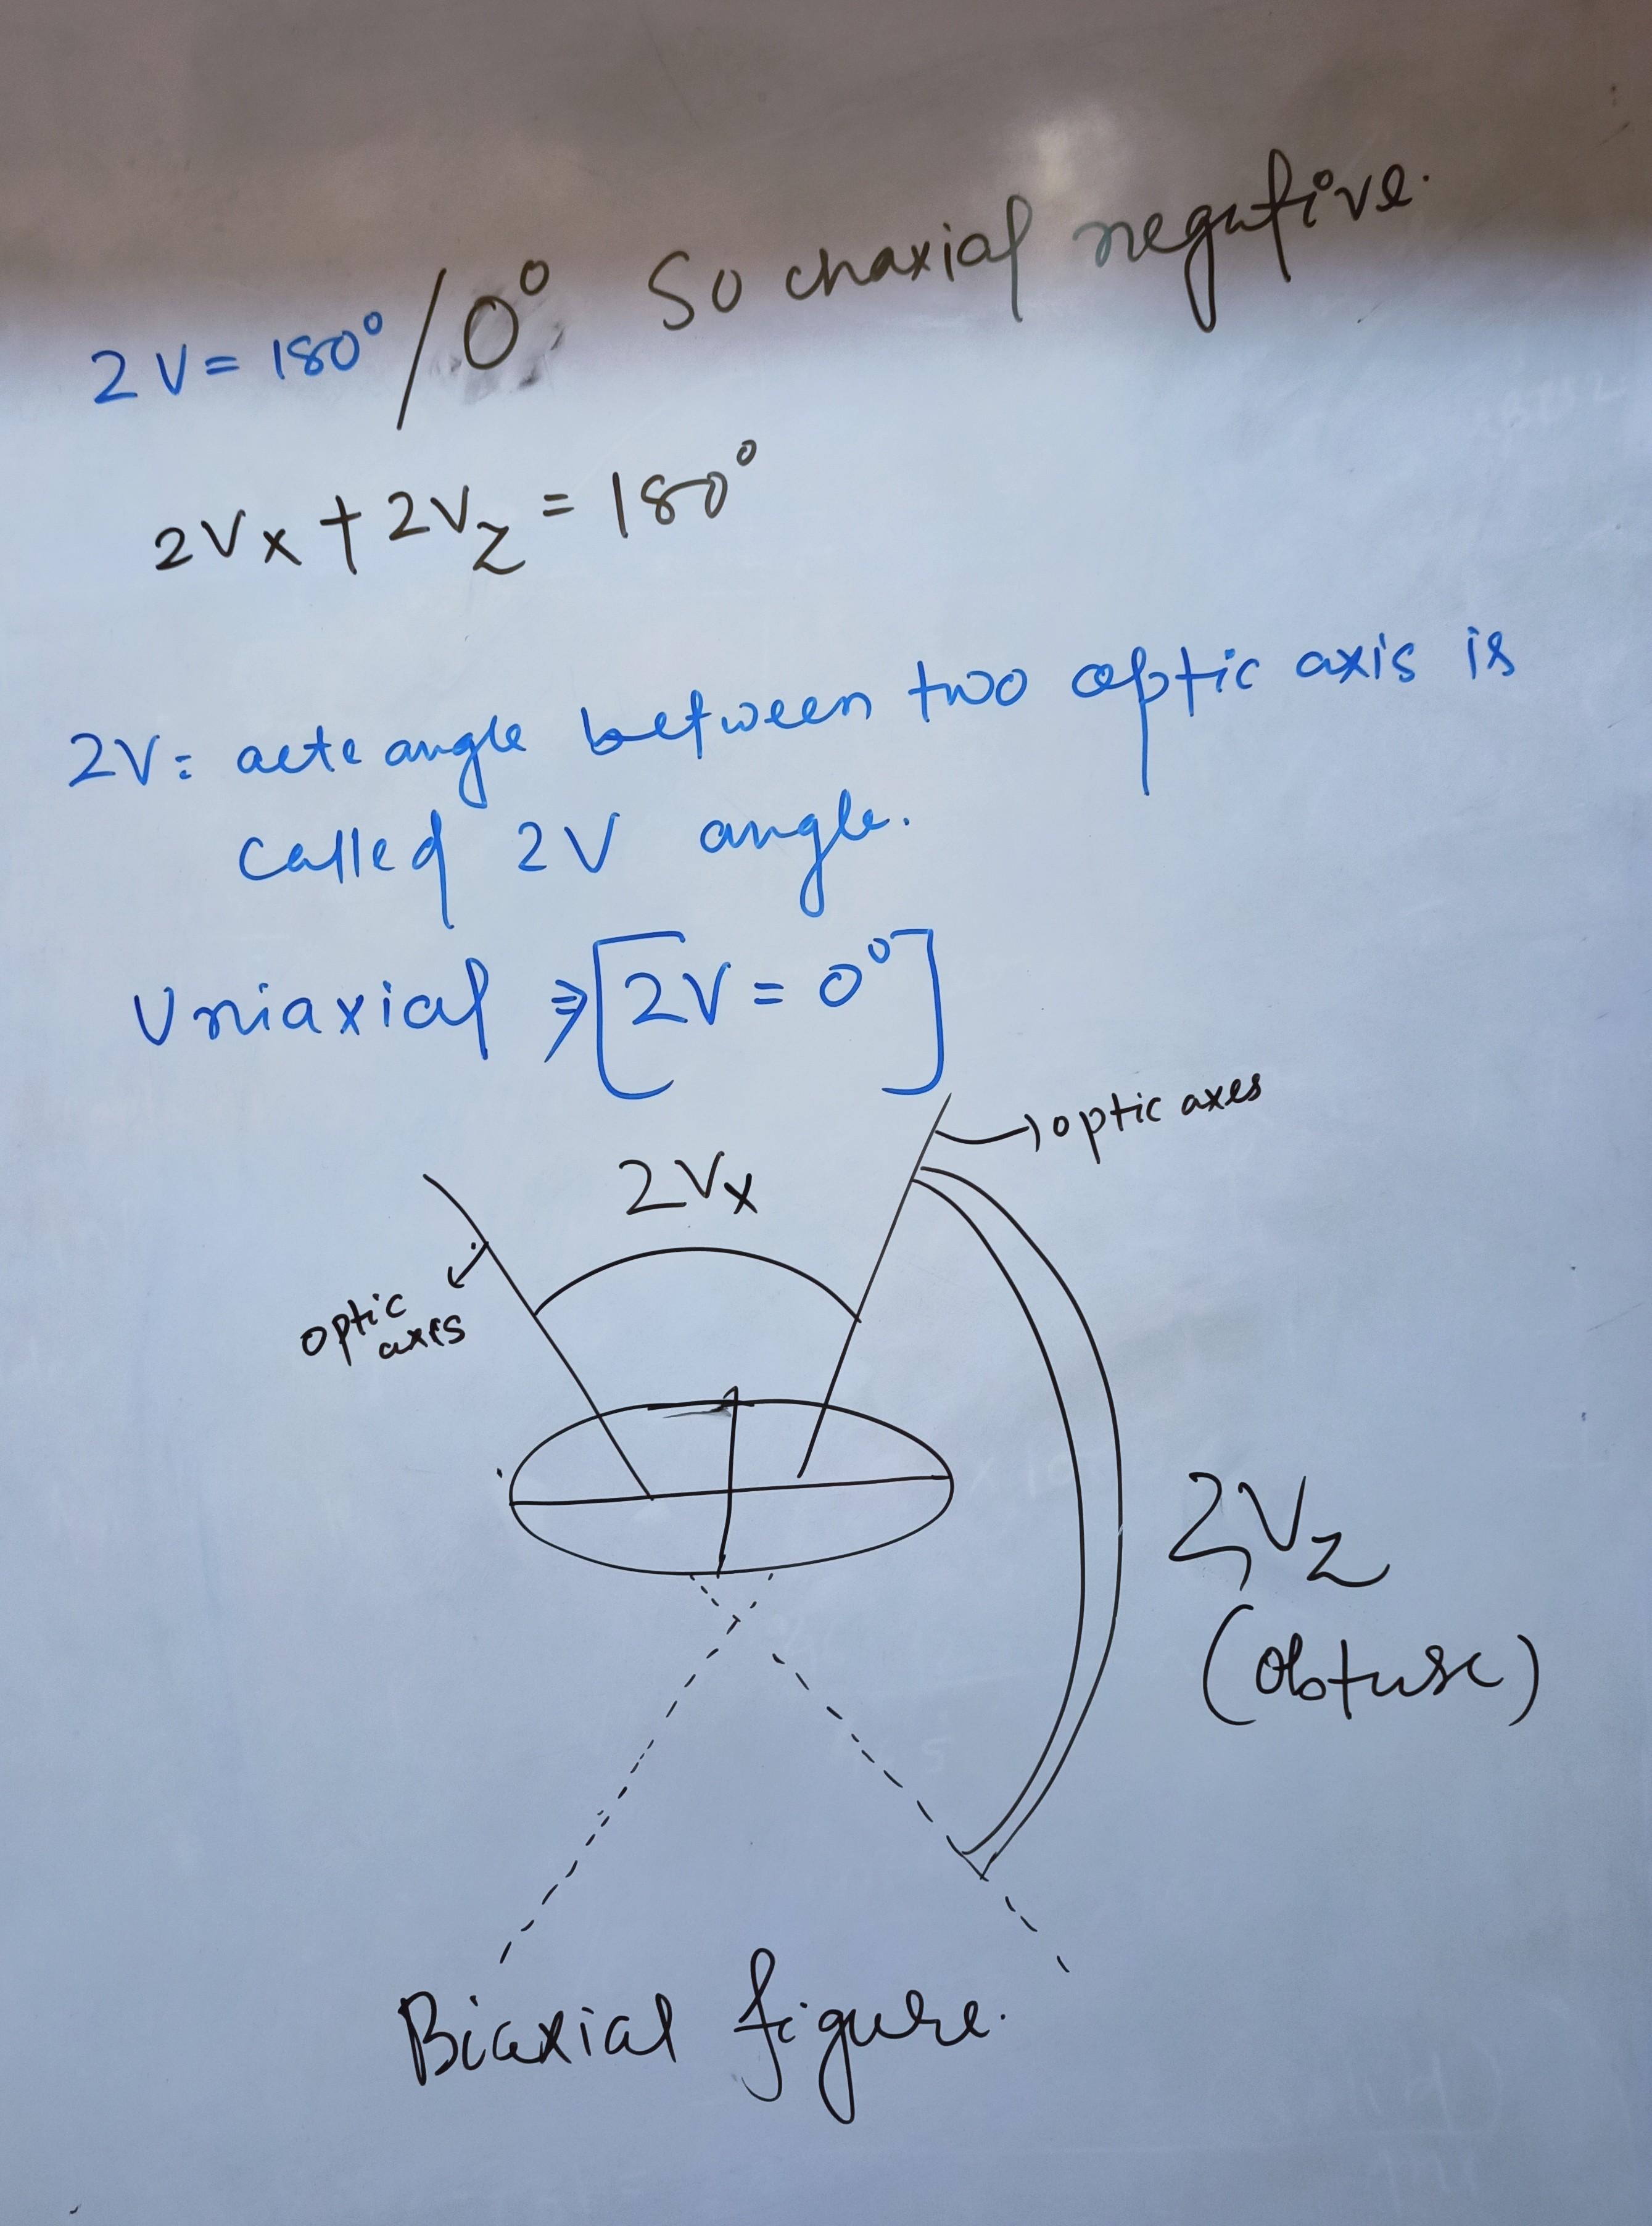 2V = 180°/0° So chaxial negative.
2Vx + 2Vz = 180°
2V: acte angle between two optic axis is
called 2V angle.
Uniaxial ⇒ [2V = 0°]
optic axes
2Vx
optic
axes
2Vz
(obtuse)
Biaxial figure.